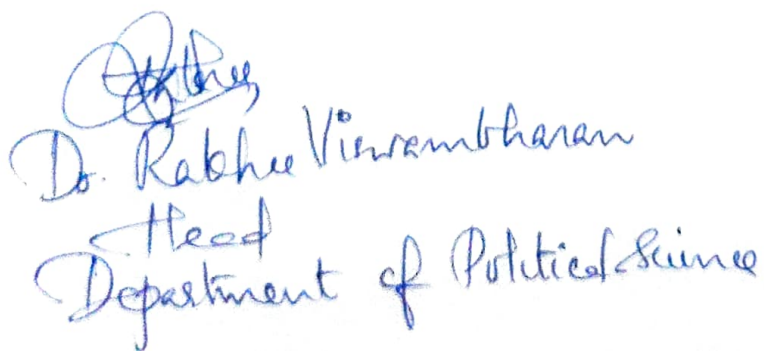 Dr. Rakhee Viswambharan
Head
Department of Political Science